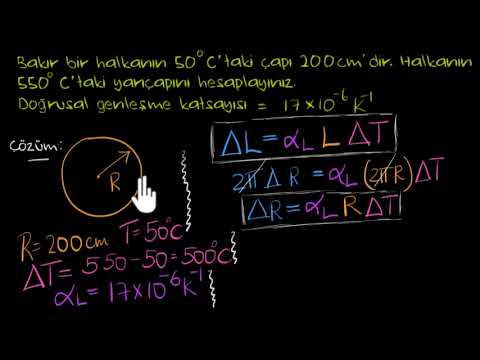 Bakır bir halkanın 50°C'taki çapı 200cm'dir. Halkanın
550°C'taki yarıçapını hesaplayınız.
Doğrusal genleşme katsayısı = 17×10⁻⁶ K⁻¹
Çözüm:
ΔL = α_L L ΔT
2π ΔR = α_L (2πR) ΔT
ΔR = α_L R ΔT
R
R = 200cm T = 50°C
ΔT = 550-50 = 500°C
α_L = 17×10⁻⁶ K⁻¹